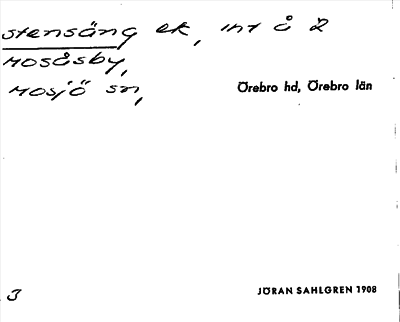 stensäng ek, int å 2
Mosåsby,
Mosjö sn,
Örebro hd, Örebro län
3
JÖRAN SAHLGREN 1908